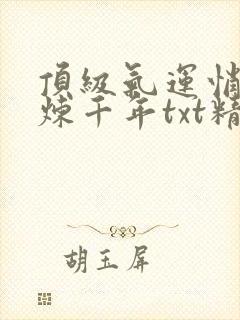 頂級氣運悄
煉千年txt精
胡玉屏